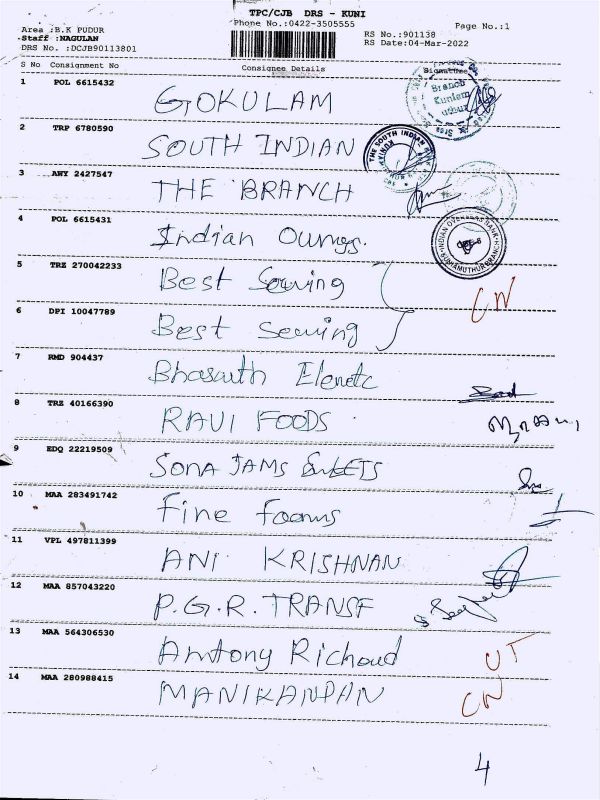 TPC/CJB DRS - KUNI
Phone No.:0422-3505555
Page No.:1
Area :B.K PUDUR
Staff :NAGULAN
DRS No. :DCJB90113801
RS No.:901138
RS Date:04-Mar-2022
S No Consignment No Consignee Details Signature
1 POL 6615432 GOKULAM
Branch
2 TRP 6780590 SOUTH INDIAN
THE SOUTH INDIAN
3 AWY 2427547 THE BRANCH
4 POL 6615431 Indian
INDIAN OVERSEAS BANK
5 TRZ 270042233 Best Sewing
CN
6 DPI 10047789 Best Sewing
7 RMD 904437
8 TRZ 40166390 RAVI FOODS
9 EDQ 22219509 SONA JAMS
10 MAA 283491742 Fine Foams
11 VPL 497811399 ANI KRISHNAN
12 MAA 857043220 P.G.R. TRANSF
13 MAA 564306530 Antony Richard UT
14 MAA 280988415 MANIKANDAN CN
4